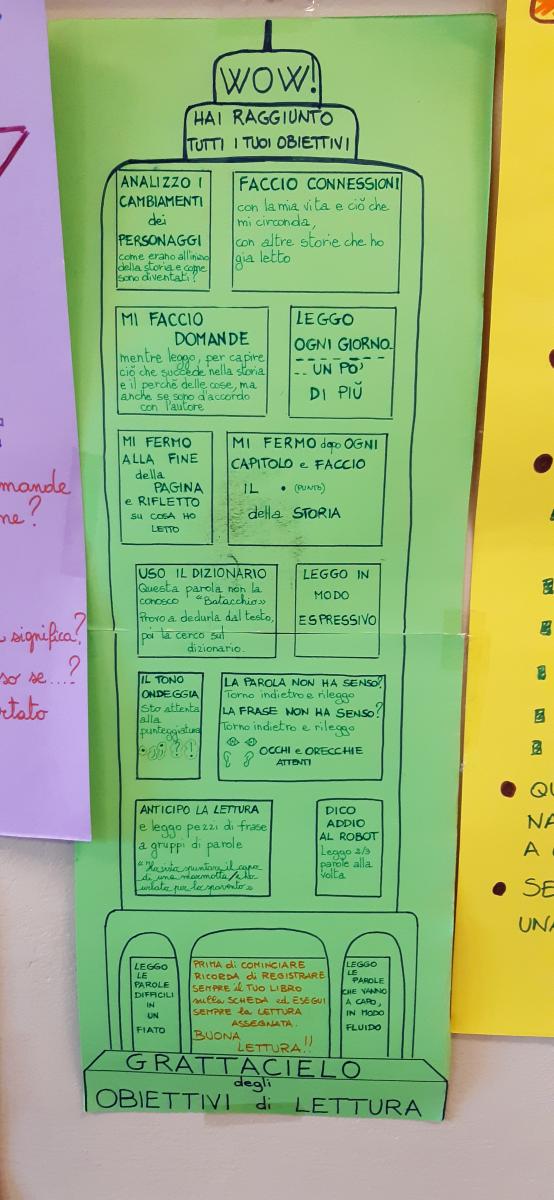 WOW!
HAI RAGGIUNTO
TUTTI I TUOI OBIETTIVI
ANALIZZO I
CAMBIAMENTI
dei
PERSONAGGI
come erano all'inizio
della storia e come
sono diventati?
FACCIO CONNESSIONI
con la mia vita e ciò che
mi circonda,
con altre storie che ho
già letto
MI FACCIO
DOMANDE
mentre leggo, per capire
ciò che succede nella storia
e il perché delle cose, ma
anche se sono d'accordo
con l'autore
LEGGO
OGNI GIORNO
UN PO'
DI PIÙ
MI FERMO
ALLA FINE
della
PAGINA
e RIFLETTO
SU COSA HO
LETTO
MI FERMO dopo OGNI
CAPITOLO e FACCIO
IL • (PUNTO)
della STORIA
USO IL DIZIONARIO
Questa parola non la
conosco "Batacchio»
Provo a dedurla dal testo,
poi la cerco sul
dizionario.
LEGGO IN
MODO
ESPRESSIVO
IL TONO
ONDEGGIA
Sto attenta
alla
punteggiatura
LA PAROLA NON HA SENSO?
Torno indietro e rileggo
LA FRASE NON HA SENSO?
Torno indietro e rileggo
OCCHI e ORECCHIE
ATTENTI
ANTICIPO LA LETTURA
e leggo pezzi di frase
a gruppi di parole
"Ha visto spuntare il capo
di una marmotta/e ha
urlato per lo spavento»
DICO
ADDIO
AL ROBOT
Leggo 2/3
parole alla
volta
LEGGO
LE
PAROLE
DIFFICILI
IN
UN
FIATO
PRIMA di COMINCIARE
RICORDA di REGISTRARE
SEMPRE il TUO LIBRO
sulla SCHEDA ed ESEGUI
SEMPRE la LETTURA
ASSEGNATA.
BUONA
LETTURA!!
LEGGO
LE
PAROLE
CHE VANNO
A CAPO,
IN MODO
FLUIDO
GRATTACIELO
degli
OBIETTIVI di LETTURA
mande
ne?
significa?
so se...?
rtato
QU
NA
A
SE
UNA